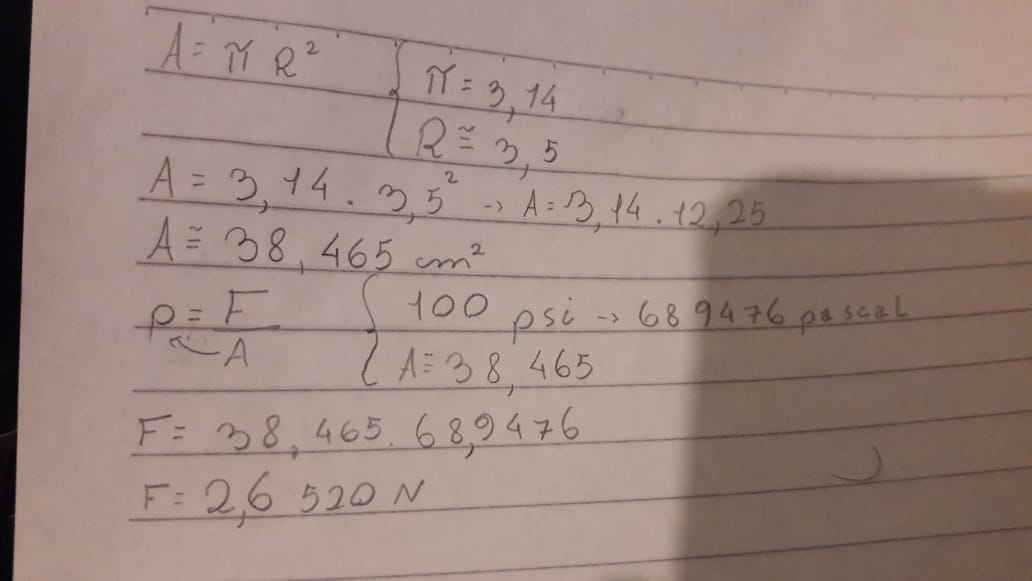 A = π R² { π = 3,14
R ≅ 3,5
A = 3,14 . 3,5² -> A = 3,14 . 12,25
A ≅ 38,465 cm²
p = F/A { 100 psi -> 689476 pascal
A = 38,465
F = 38,465 . 68,9476
F = 2,6 520 N